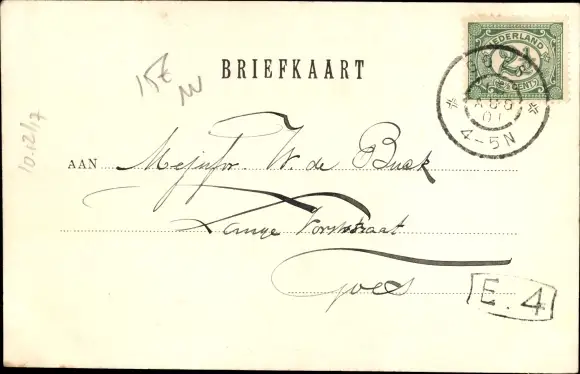 NEDERLAND
2½
CENT
15€
BRIEFKAART
GOES
AUG
01
4-5N
10.12/17
AAN Mejufr. W. de Buck
Lange Vorststraat
Goes
E. 4